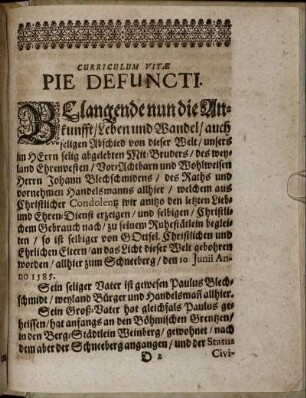 CURRICULUM VITÆ
PIE DEFUNCTI.
BElangende nun die An-
kunfft/Leben und Wandel/auch
seligen Abschied von dieser Welt/unsers
im HErrn selig abgelebten Mit-Bruders/des wey-
land Ehrnvesten/Vor-Achtbarn und Wohlweisen
Herrn Johann Blechschmidens/des Raths und
vornehmen Handelsmanns allhier/welchem aus
Christlicher Condolentz wir anitzo den letzten Lieb-
und Ehren-Dienst erzeigen/und selbigen/Christli-
chem Gebrauch nach/zu seinen Ruhestätlein beglei-
ten/so ist selbiger von Gottsel. Christlichen und
Ehrlichen Eltern/an das Licht dieser Welt gebohren
worden/allhier zum Schneeberg/den 10 Junii An-
no 1585.
Sein seliger Vater ist gewesen Paulus Blech-
schmidt/weyland Bürger und Handelsmañ allhier.
Sein Groß-Vater hat gleichfals Paulus ge-
heissen/hat anfangs an den Böhmischen Grentzen/
in den Berg-Städtlein Weinberg/gewohnet/nach
dem aber der Schneeberg angangen/und der Status
D 2
Civi-